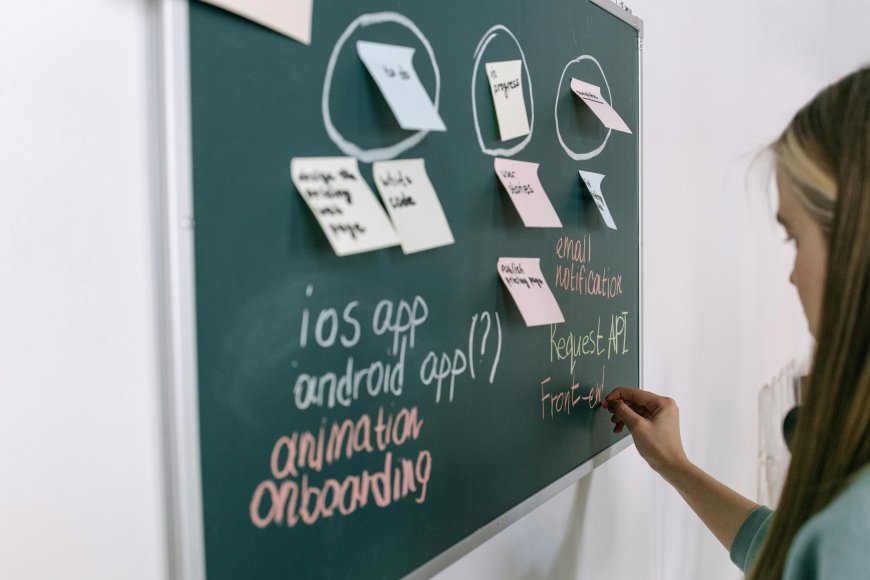 to do
in
progress
completed
design the
pricing
web
page
write
code
user
stories
publish
pricing page
ios app
android app(?)
animation
onboarding
email
notification
Request API
Front-end